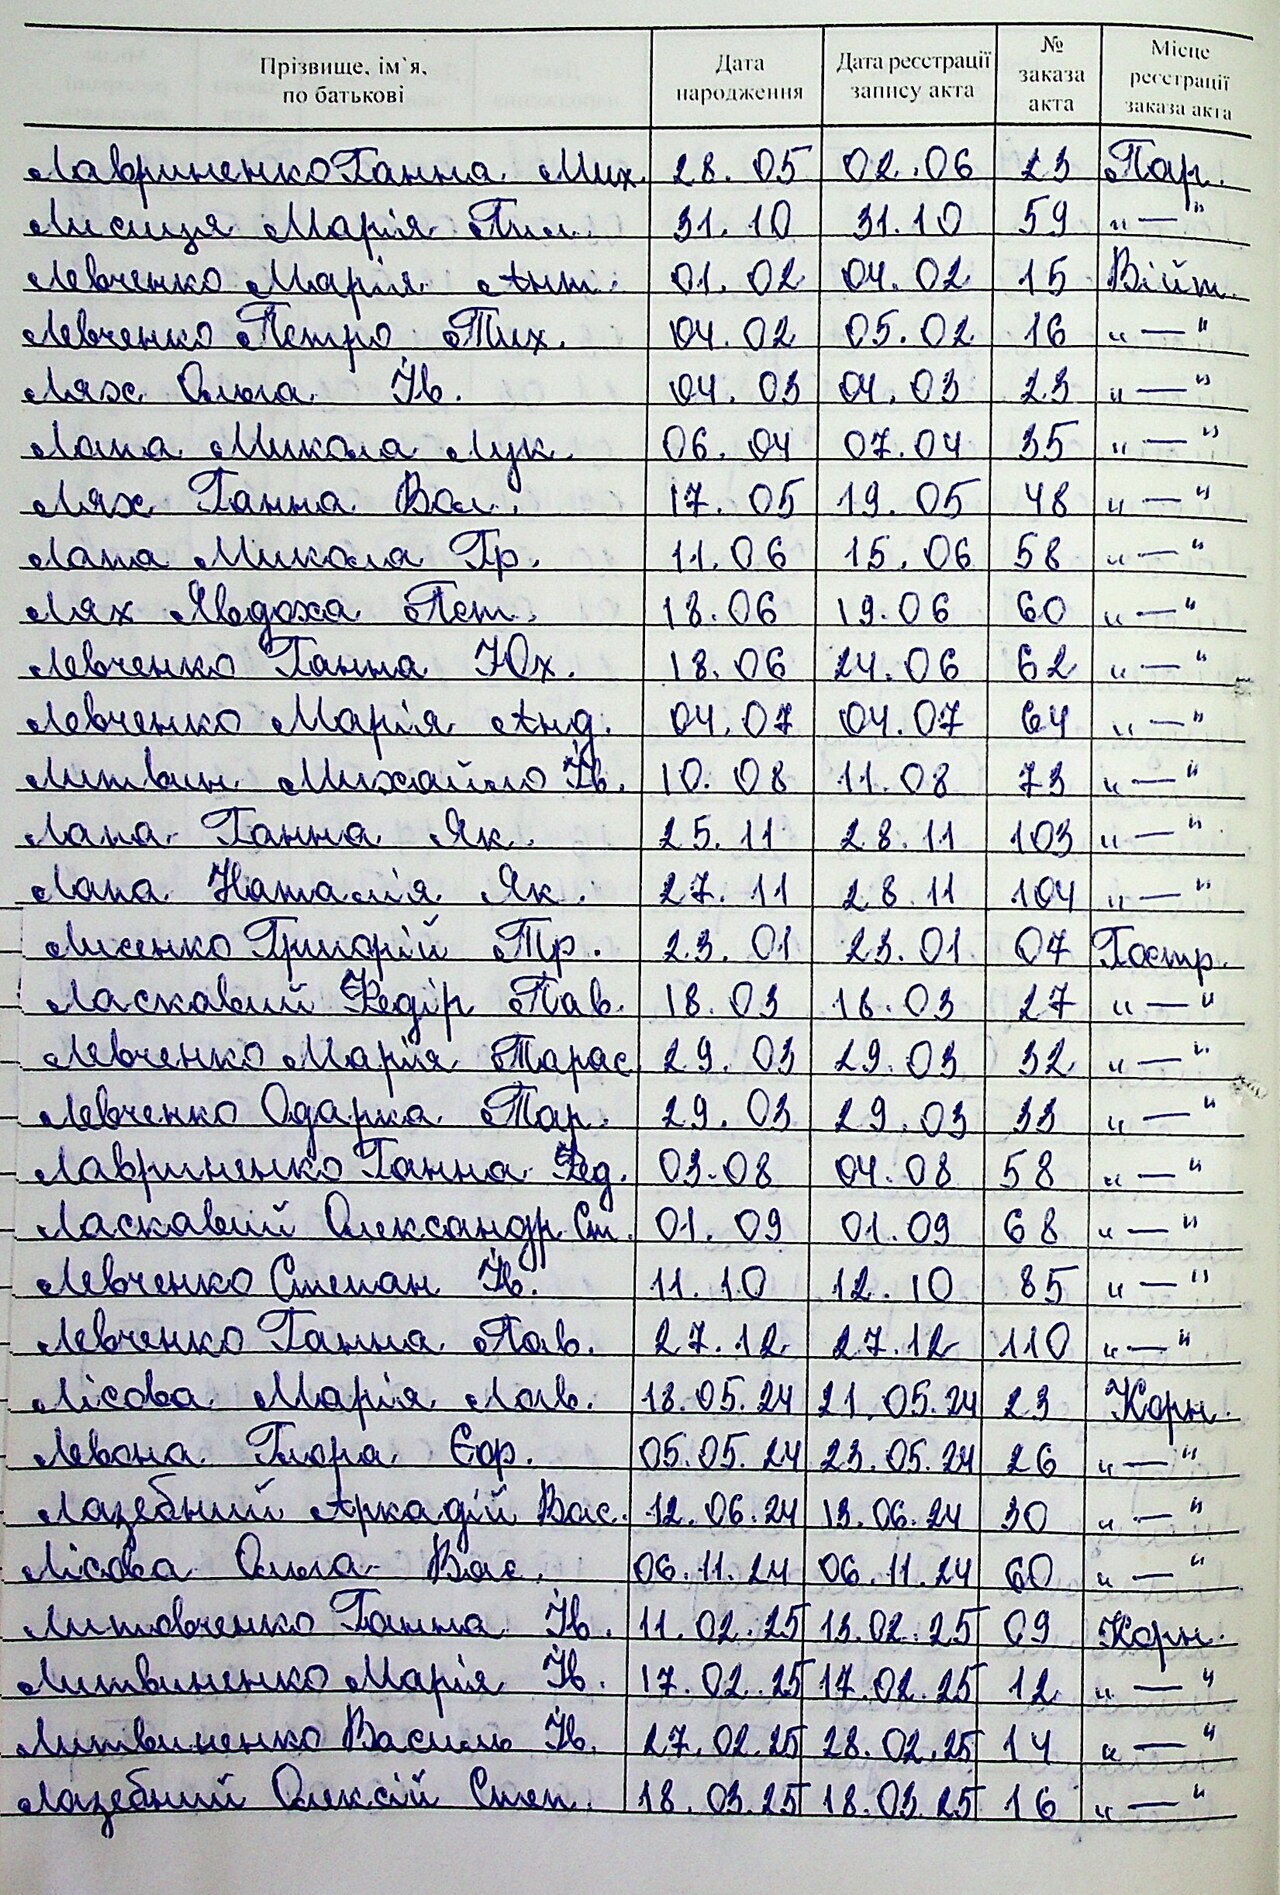 Прізвище, ім`я, по батькові Дата народження Дата реєстрації запису акта № заказа акта Місце реєстрації заказа акта
Лавриненко Ганна Мих. 28.05 02.06 23 Пар.
Лисиця Марія Пил. 31.10 31.10 59 „ — "
Левченко Марія Ант. 01.02 04.02 15 Війт.
Левченко Петро Тих. 04.02 05.02 16 „ — "
Лях Ольга Ів. 04.03 04.03 23 „ — "
Лапа Микола Лук. 06.04 07.04 35 „ — "
Лях Ганна Вас. 17.05 19.05 48 „ — "
Лапа Микола Гр. 11.06 15.06 58 „ — "
Лях Явдоха Пет. 18.06 19.06 60 „ — "
Левченко Ганна Юх. 18.06 24.06 62 „ — "
Левченко Марія Анд. 04.07 04.07 64 „ — "
Литвин Михайло Ів. 10.08 11.08 73 „ — "
Лапа Ганна Як. 25.11 28.11 103 „ — "
Лапа Наталія Як. 27.11 28.11 104 „ — "
Лисенко Григорій Гр. 23.01 23.01 07 Гостр.
Ласкавий Федір Пав. 18.03 18.03 27 „ — "
Левченко Марія Тарас 29.03 29.03 32 „ — "
Левченко Одарка Тар. 29.03 29.03 33 „ — "
Лавриненко Ганна Фед. 03.08 04.08 58 „ — "
Ласкавий Олександр Ст. 01.09 01.09 68 „ — "
Левченко Степан Ів. 11.10 12.10 85 „ — "
Левченко Ганна Пав. 27.12 27.12 110 „ — "
Лісова Марія Логв. 18.05.24 21.05.24 23 Корн.
Левона Глора Єфр. 05.05.24 23.05.24 26 „ — "
Лазебний Аркадій Вас. 12.06.24 13.06.24 30 „ — "
Лісова Ольга Вас. 06.11.24 06.11.24 60 „ — "
Литовченко Ганна Ів. 11.02.25 13.02.25 09 Корн.
Литвиненко Марія Ів. 17.02.25 17.02.25 12 „ — "
Литвиненко Василь Ів. 27.02.25 28.02.25 14 „ — "
Лазебний Олексій Степ. 18.03.25 18.03.25 16 „ — "